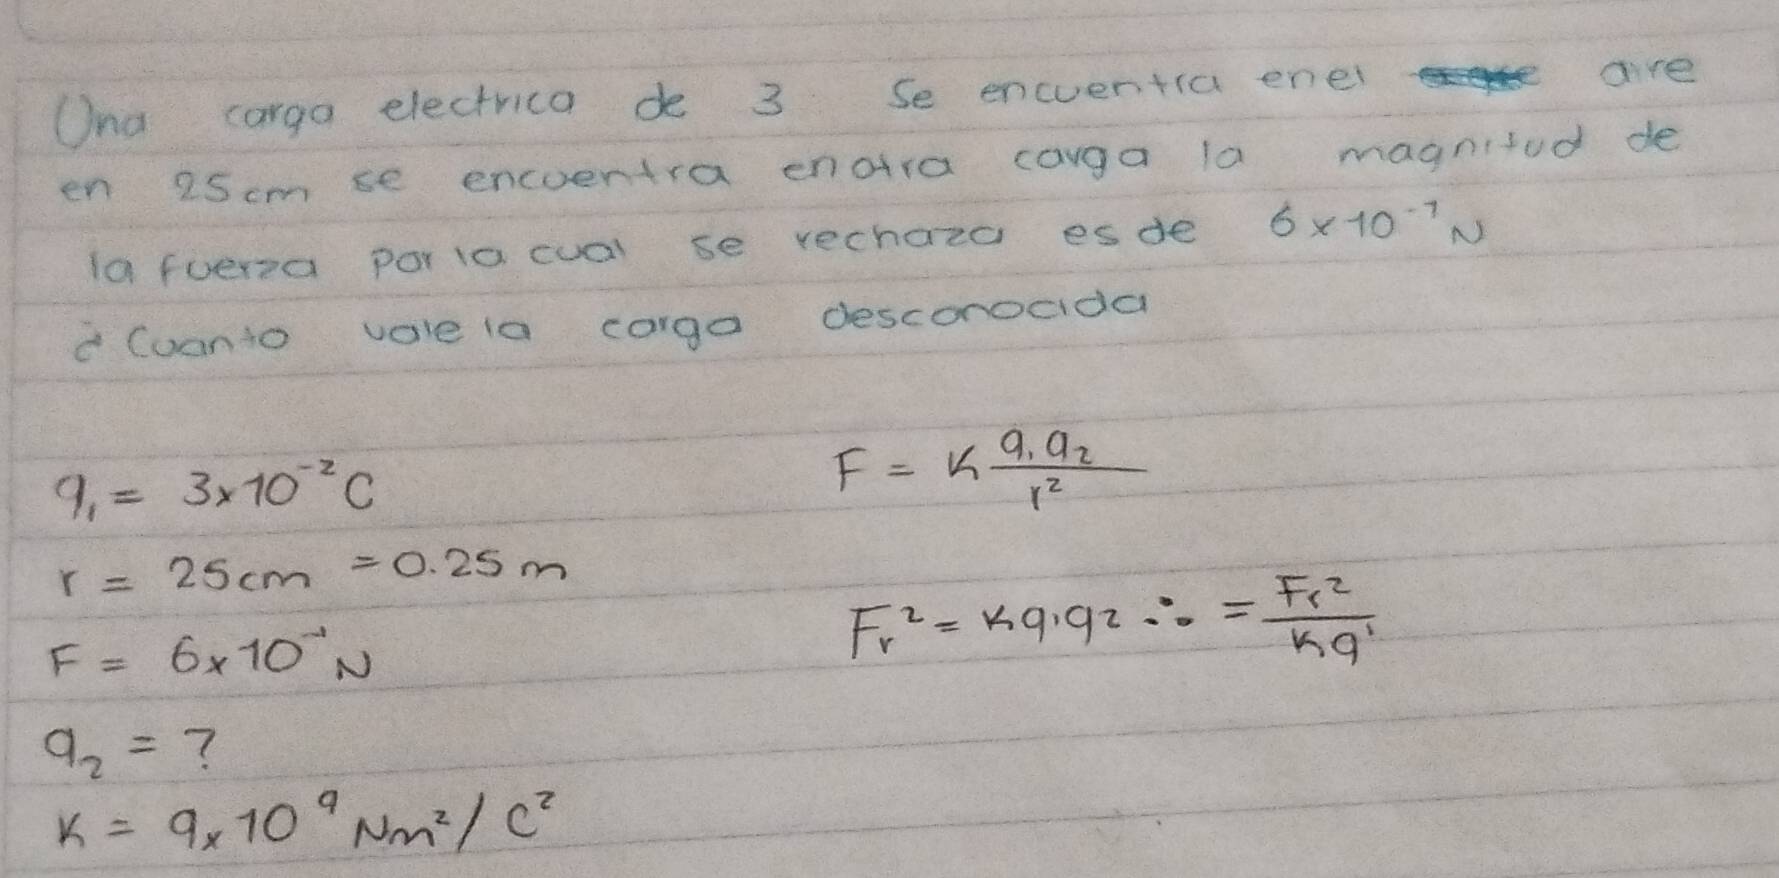 Una carga electrica de 3 Se encuentra enel aire
en 25cm se encuentra enotra carga la magnitud de
la fuerza por la cual se rechaza es de 6x10⁻¹N
¿Cuanto vale la carga desconocida
q₁ = 3x10⁻²C
F = K q₁q₂/r²
r = 25cm = 0.25m
Fr² = Kq₁q₂ ∴ = Fr²/Kq¹
F = 6x10⁻¹N
q₂ = ?
K = 9x10⁹Nm²/C²